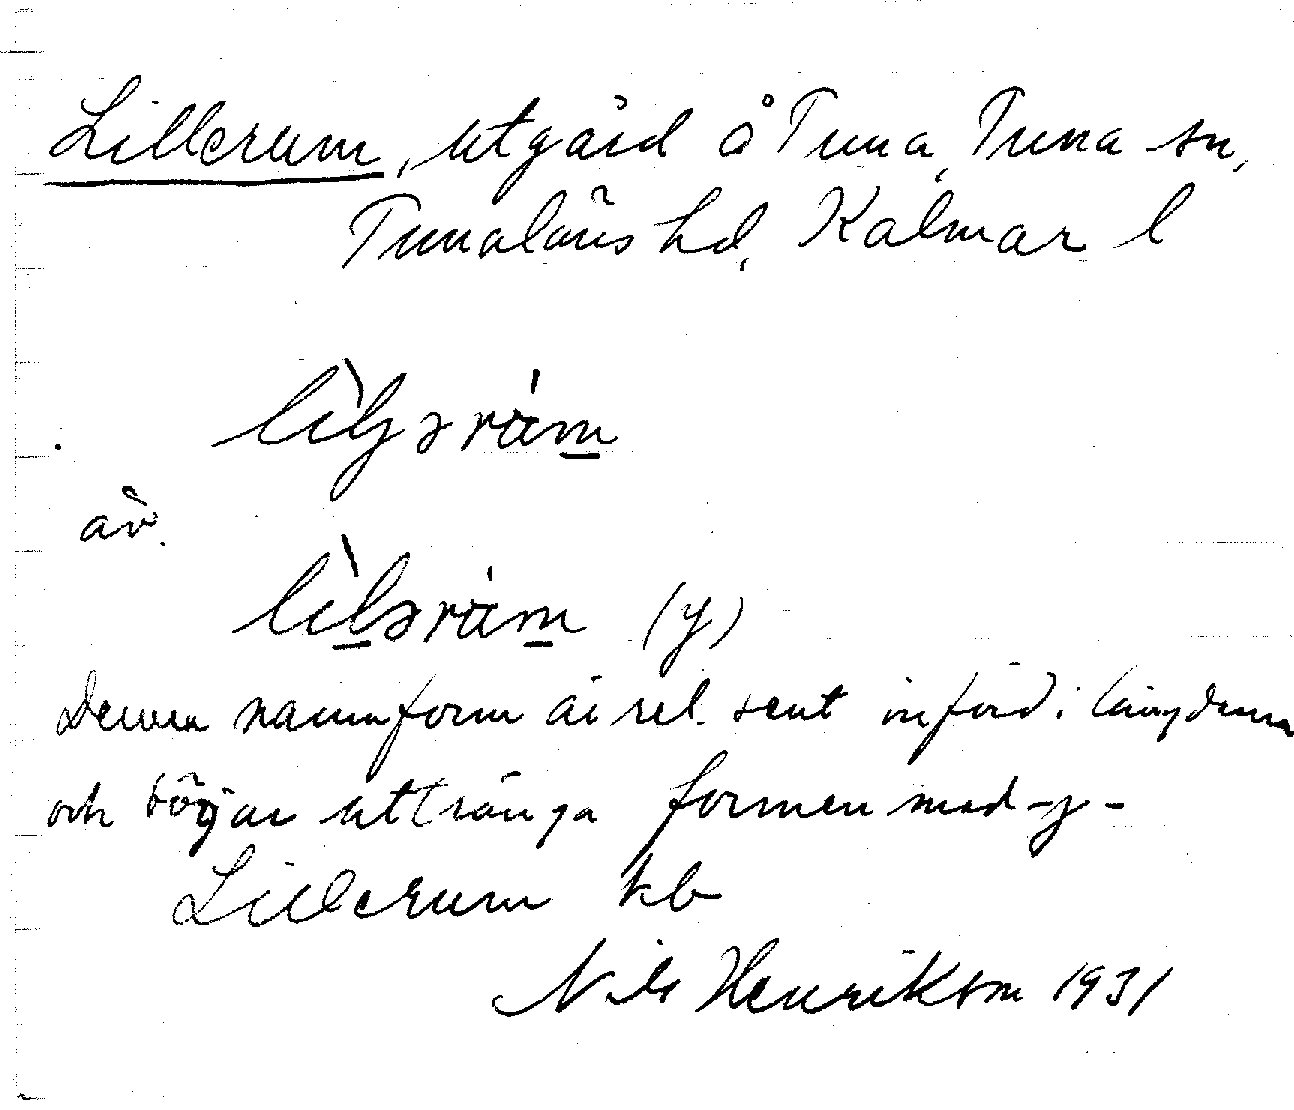 Lillerum, utgård å Tuna, Tuna sn,
Tunaläns hd, Kalmar l
även
Denna namnform är rel. sent införd i längderna
och börjar uttränga formen med -y-
Lillerum kb
Nils Henrikson 1931